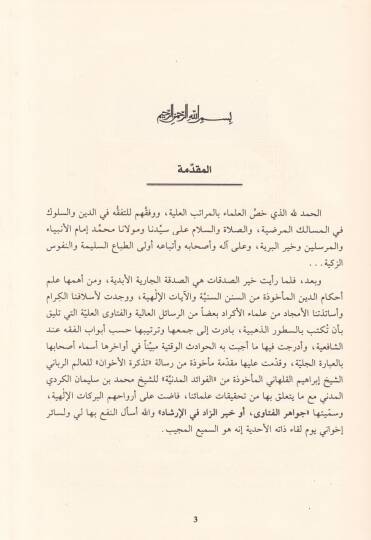 بسم الله الرحمن الرحيم
المقدّمة
الحمد لله الذي خصّ العلماء بالمراتب العلية، ووفقهم للتفقُّه في الدين والسلوك
في المسالك المرضية، والصلاة والسلام على سيّدنا ومولانا محمّد إمام الأنبياء
والمرسلين وخير البرية، وعلى آله وأصحابه وأتباعه أولى الطباع السليمة والنفوس
الزكية . . .
وبعد، فلما رأيت خير الصدقات هي الصدقة الجارية الأبدية، ومن أهمها علم
أحكام الدين المأخوذة من السنن السنيَّة والآيات الإلٰهية، ووجدت لأسلافنا الكرام
وأساتذتنا الأمجاد من علماء الأكراد بعضاً من الرسائل العالية والفتاوى العليّة التي تليق
بأن تُكتب بالسطور الذهبية، بادرت إلى جمعها وترتيبها حسب أبواب الفقه عند
الشافعية، وأدرجت فيها ما أجبت به الحوادث الوقتية مبيّناً في أواخرها أسماء أصحابها
بالعبارة الجليّة، وقدّمت عليها مقدّمة مأخوذة من رسالة «تذكرة الأخوان» للعالم الرباني
الشيخ إبراهيم القلهاتي المأخوذة من «الفوائد المدنيَّة» للشيخ محمد بن سليمان الكردي
المدني مع ما يتعلق بها من تحقيقات علمائنا، فاضت على أرواحهم البركات الإلٰهية،
وسمّيتها «جواهر الفتاوى، أو خير الزاد في الإرشاد» والله أسأل النفع بها لي ولسائر
إخواني يوم لقاء ذاته الأحدية إنه هو السميع المجيب.
3